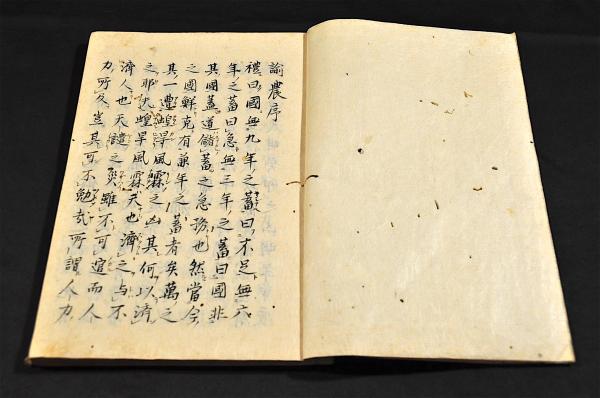 諭農序
禮曰國無九年之蓄曰不足無六
年之蓄曰急無三年之蓄曰國非
其國蓋道儲蓄之急務也然當今
之國鮮克有兼年之蓄者矣萬之
其一遭蝗旱風霖之凶其何以濟
之耶抑蝗旱風霖天也濟之与不
濟人也天譴之災雖不可逭而人
力所及豈其可不勉哉所謂人力